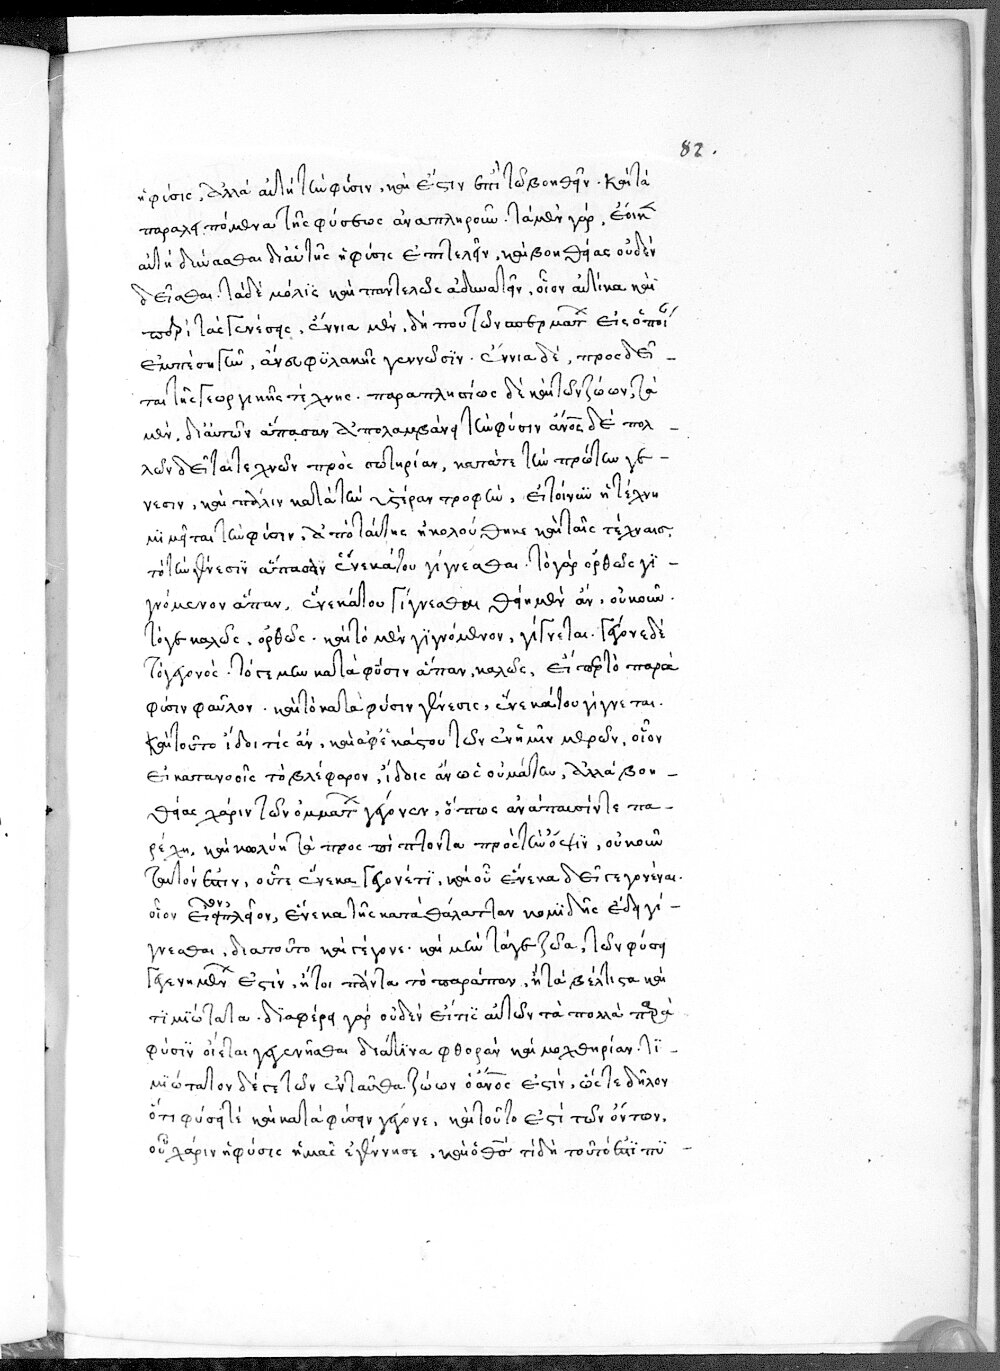 82.
ἡ φύσις, ἀλλὰ αὐτὴ τὴν φύσιν, καὶ ἔστιν ἐπὶ τῷ βοηθεῖν. καὶ τὰ
παραλειπόμενα τῆς φύσεως ἀναπληροῦν. τὰ μὲν γὰρ, ἔοικεν
αὐτὴ δύνασθαι δι' αὑτῆς ἡ φύσις ἐπιτελεῖν, καὶ βοηθείας οὐδὲν
δεῖσθαι. τὰ δὲ μόλις καὶ παντελῶς ἀδυνατεῖν, οἷον αὐτίκα καὶ
πρὸς τὰς γενέσεις, ἔννια μὲν, δή που τῶν σπερμάτων εἰς ὁποίαν
ἐμπέσῃ γῆν, ἄνευ φυλακῆς γεννῶσιν. ἔννια δὲ, προσδεῖ-
ται τῆς γεωργικῆς τέχνης. παραπλησίως δὲ καὶ τῶν ζώων, τὰ
μὲν, δι' αὑτῶν ἅπασαν ἀπολαμβάνει τὴν φύσιν ἄνος δὲ πολ-
λῶν δεῖται τεχνῶν πρὸς σωτηρίαν, κατά τε τὴν πρώτην γέ-
νεσιν, καὶ πάλιν κατὰ τὴν ὑστέραν τροφὴν, εἰ τοίνυν ἡ τέχνη
μιμεῖται τὴν φύσιν, ἀπὸ ταύτης ἠκολούθηκε καὶ ταῖς τέχναις,
τὸ τὴν γένεσιν ἅπασαν ἕνεκά του γίγνεσθαι. τὸ γὰρ ὀρθῶς γι-
γνόμενον ἅπαν, ἕνεκά του γίγνεσθαι θείημεν ἄν, οὐκοῦν.
τό γε καλῶς, ὀρθῶς. καὶ τὸ μὲν γιγνόμενον, γίγνεται. γέγονε δὲ
τὸ γεγονὸς. τό τε μὴν κατὰ φύσιν ἅπαν, καλῶς, εἴπερ τὸ παρὰ
φύσιν φαῦλον. καὶ τὸ κατὰ φύσιν γένεσις, ἕνεκά του γίγνεται.
καὶ τοῦτο ἴδοι τίς ἄν, καὶ ἀφ' ἑκάστου τῶν ἐν ἡμῖν μερῶν, οἷον
εἰ κατανοοῖς τὸ βλέφαρον, ἴδοις ἂν ὡς οὐ μάτην, ἀλλὰ βοη-
θείας χάριν τῶν ὀμμάτων γέγονεν, ὅπως ἀνάπαυσίν τε πα-
ρέχῃ, καὶ κωλύῃ τὰ προσπίπτοντα πρὸς τὴν ὄψιν, οὐκοῦν
ταυτόν ἐστιν, οὗτε ἕνεκα γέγονέ τι, καὶ οὗ ἕνεκα δεῖ γεγονέναι.
οἷον εἰ τὸν πλεῖον, ἕνεκα τῆς κατὰ θάλατταν κομιδῆς ἔδει γί-
γνεσθαι, διὰ τοῦτο καὶ γέγονε. καὶ μὴν τά γε ζῶα, τῶν φύσει
γεγενημένων ἐστὶν, ἤτοι πάντα τὸ παράπαν, ἢ τὰ βέλτιστα καὶ
τιμιώτατα. διαφέρει γὰρ οὐδὲν εἴ τις αὐτῶν τὰ πολλὰ παρὰ
φύσιν οἴεται γεγενῆσθαι διά τινα φθορὰν καὶ μοχθηρίαν. τι-
μιώτατον δέ γε τῶν ἐνταῦθα ζώων ὁ ἄνος ἐστὶν, ὥστε δῆλον
ὅτι φύσει τέ καὶ κατὰ φύσιν γέγονε, καὶ τοῦτο ἐστὶ τῶν ὄντων,
οὗ χάριν ἡ φύσις ἡμᾶς ἐγέννησε, καὶ ὁ θεός τί δὴ τοῦτό ἐστι πυ-